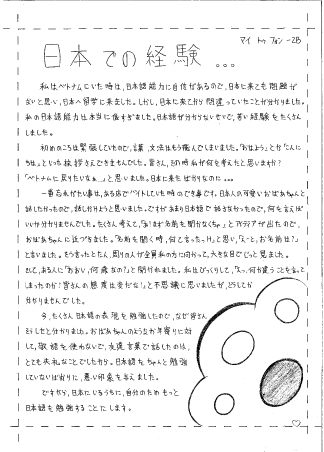 マイ トゥ フォン -2B
日本での経験...
私はベトナムにいた時は、日本語能力に自信があるので、日本に来ても問題が
ないと思い、日本へ留学に来ました。しかし、日本に来てから間違っていたことが分かりました。
私の日本語能力は本当に低すぎました。日本語が分からないせいで、苦い経験をたくさん
しました。
初めのころは緊張していたので、言葉、文法はもう飛んでしまいました。「おはよう」とか「こんに
ちは」といった挨拶さえできませんでした。皆さん、その時私が何を考えたと思いますか？
「ベトナムに戻りたいなぁ...」と思いました。日本に来たばかりなのに...
一番忘れがたい事は、ある店でバイトしていた時のでき事です。日本人の可愛いおばあちゃんと
話したかったので、話しかけようと思いました。ですがあまり日本語で話さなかったので、何を言えば
いいか分かりませんでした。たくさん考えて、「あ！まず名前を聞かなくちゃ」とアイデアが出たので、
おばあちゃんに近づきました。「名前を聞く時、何と言ったっけ」と思い、「えーと、お名前は？」
と言いました。そう言ったとたん、周りの人が全員私の方に向かって、大きな目でじっと見ました。
そして、ある人に「おおい、何歳なの？」と聞かれました。私はびっくりして、「えっ、何か違うことを言って
しまったのか？皆さんの態度は変だな！」と不思議に思いましたが、どうしても
分かりませんでした。
今、たくさん日本語の表現を勉強したので、なぜ皆さん
そうしたと分かりました。おばあちゃんのような年寄りに対
して、敬語を使わないで、友達言葉で話したのは、
とても失礼なことでしたから。日本語をちゃんと勉強
していないばかりに、悪い印象を与えました。
ですから、日本にいるうちに、自分のためもっと
日本語を勉強することにします。